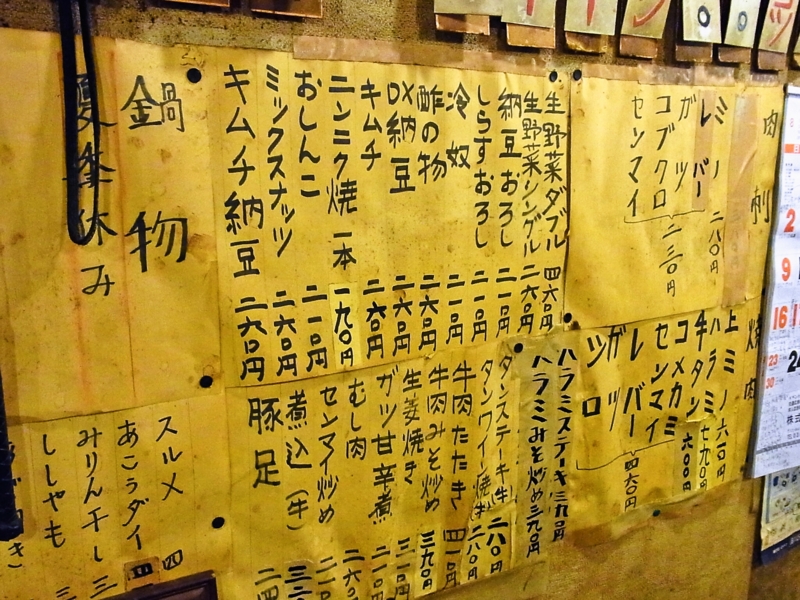 肉刺
ミノ 二八〇円
レバー
ガツ
コブクロ 二三〇円
センマイ
生野菜ダブル 四六〇円
生野菜シングル 二六〇円
納豆おろし 二一〇円
しらすおろし 二一〇円
冷奴 二一〇円
酢の物 二六〇円
DX納豆 二六〇円
キムチ 二六〇円
ニンニク焼一本 一九〇円
おしんこ 二一〇円
ミックスナッツ 二六〇円
キムチ納豆 二六〇円
鍋物
夏季休み
焼肉
上ミノ 六一〇円
ハラミ 七九〇円
牛タン 六〇〇円
コメカミ
センマイ
レバー 四六〇円
ガツ
シロ
ハラミステーキ 三九〇円
ハラミみそ炒め 三九〇円
タンステーキ(牛)
タンワイン焼(牛) 二八〇円
牛肉たたき 四一〇円
牛肉みそ炒め 三九〇円
生姜焼き 三一〇円
ガツ甘辛煮 二一〇
むし肉 二六〇
センマイ炒め 二一
煮込(牛) 三二
豚足 二四
スルメ 四
あこうダイ 四
みりん干し 三
ししゃも 三